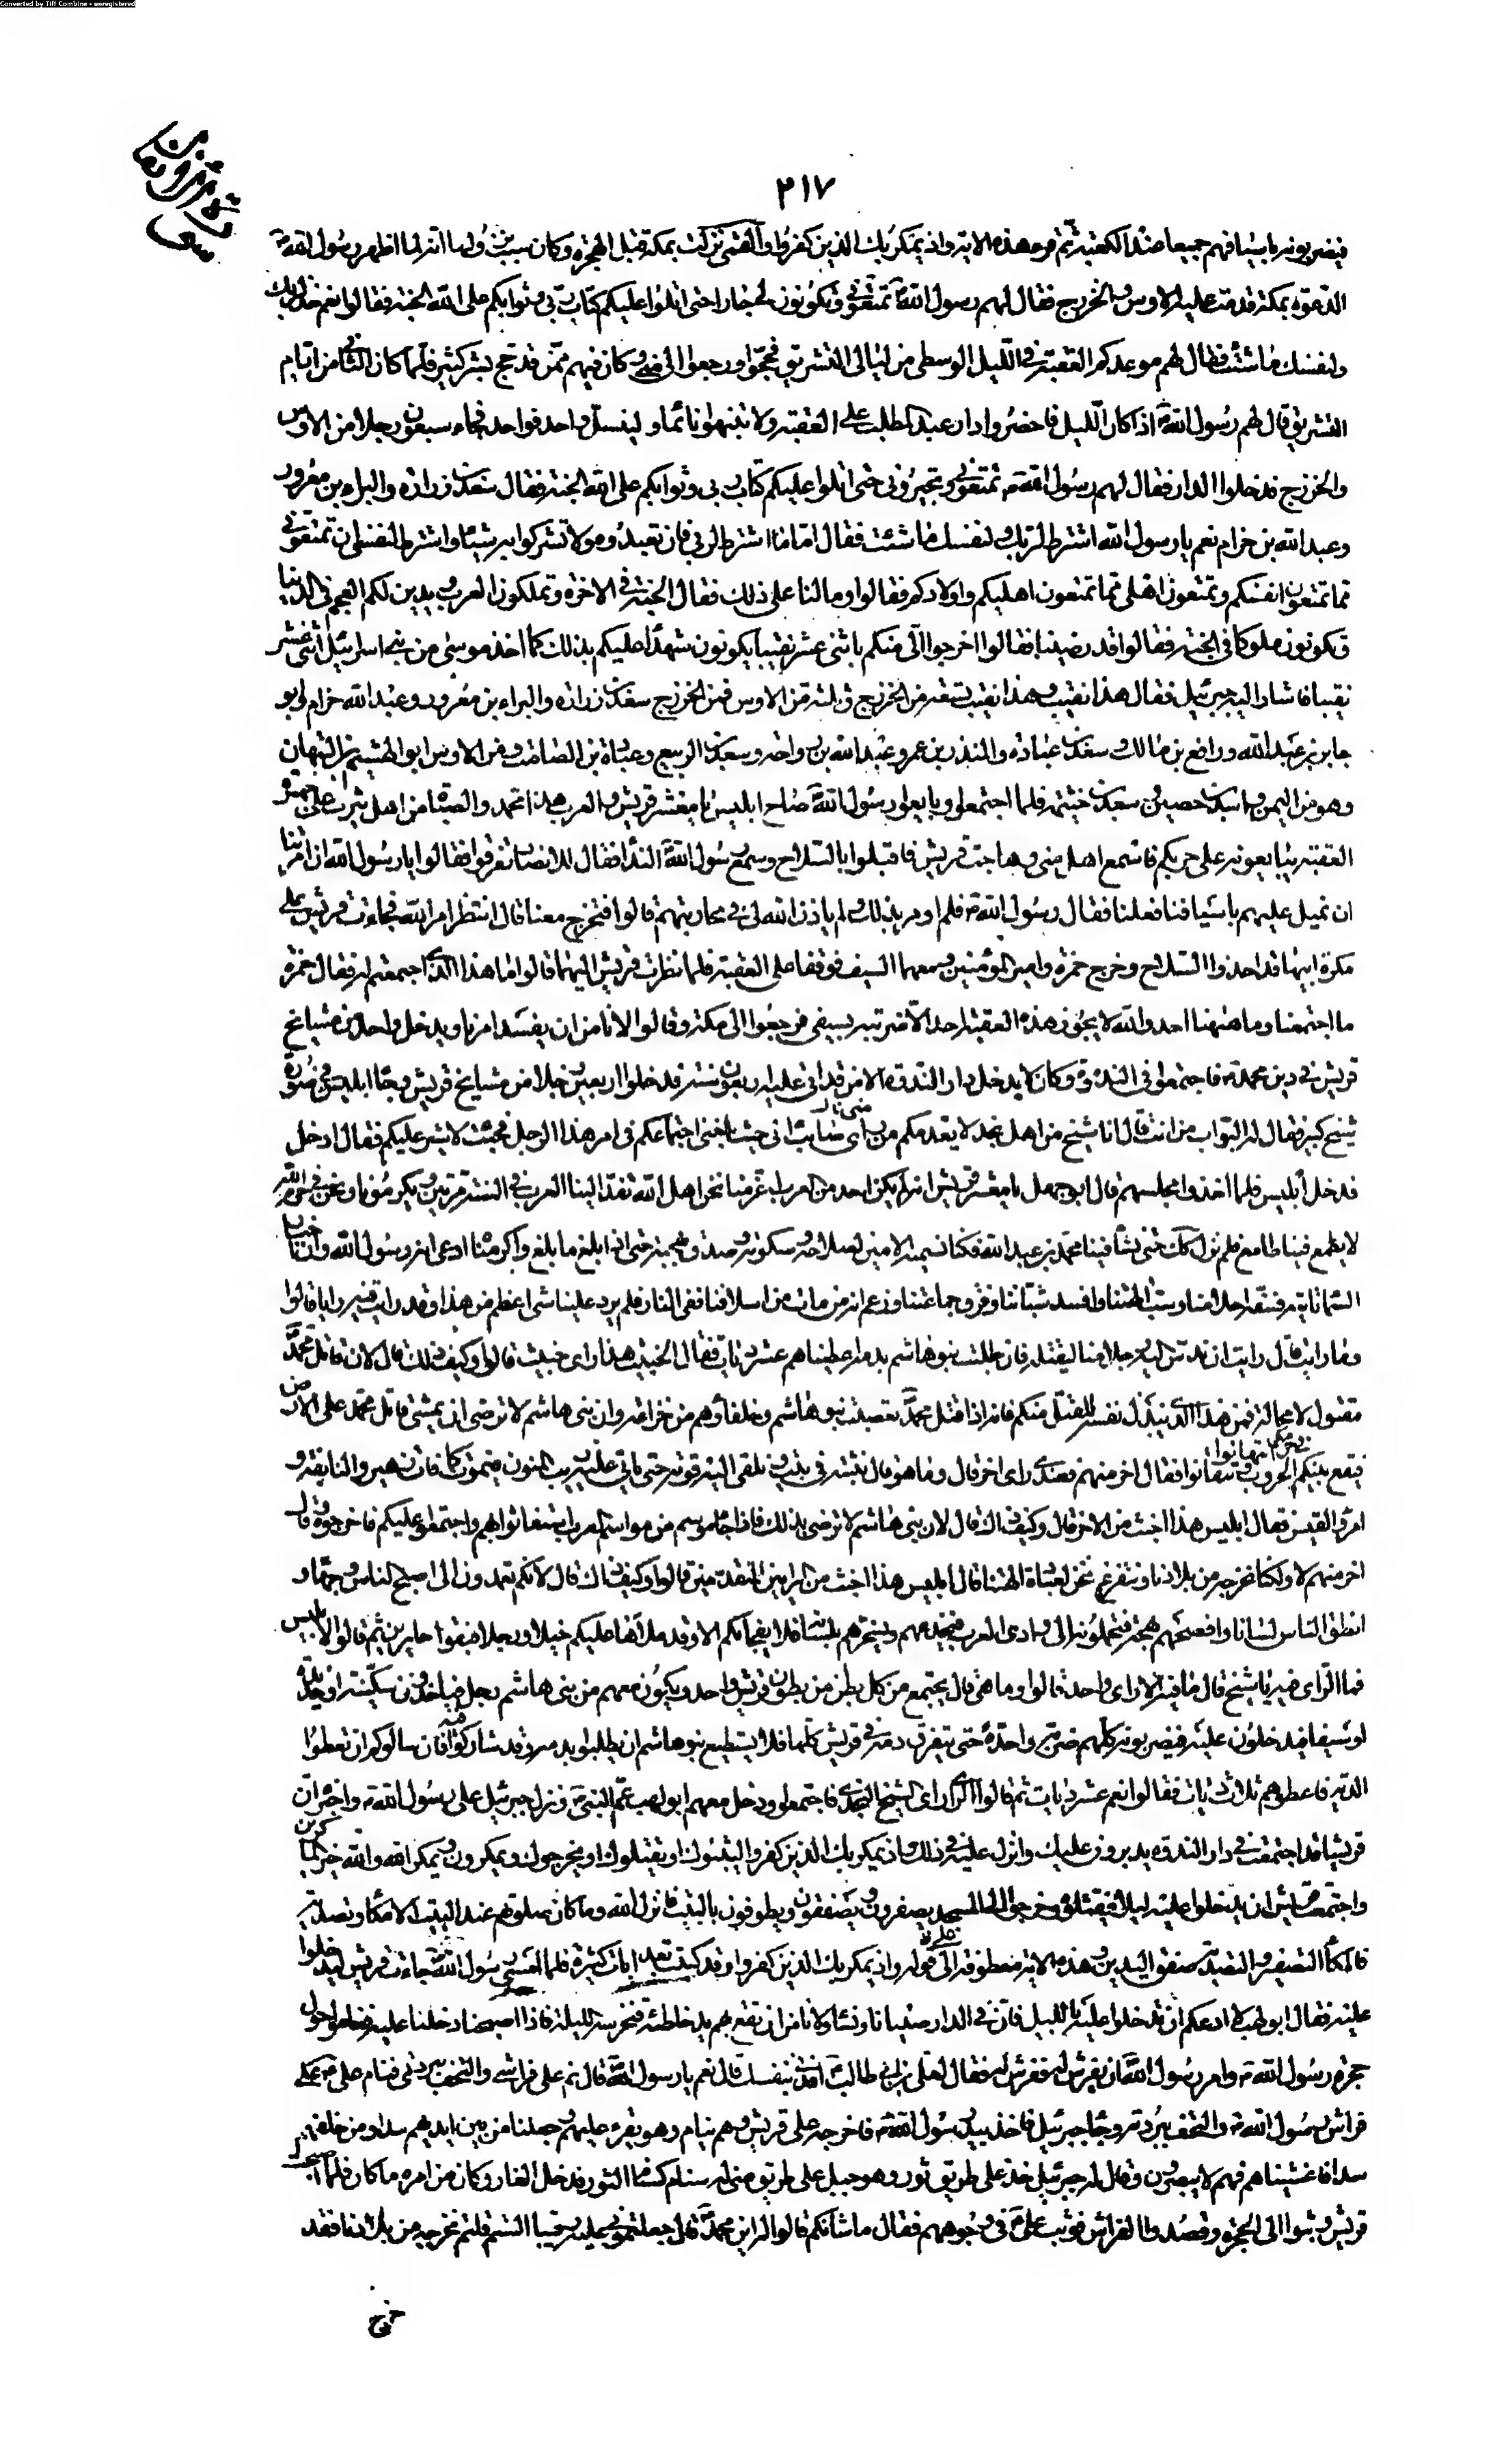 Converted by Tiff Combine - unregistered
٢١٧
فيضربونه باسيافهم جميعا عند الكعبة ثم قرء هذه الاية واذ يمكر بك الذين كفروا والقمى نزلت بمكة قبل الهجرة وكان سبب نزولها انه لما اظهر رسول الله
الدعوة بمكة قدمت عليه الاوس والخزرج فقال لهم رسول الله تمنعونى وتكونون لى جارا حتى اتلوا عليكم كتاب ربى وثوابكم على الله الجنة فقالوا نعم خذ لربك
ولنفسك ما شئت فقال لهم موعدكم العقبة فى الليل الوسطى من ليالى التشريق فحجوا ورجعوا الى منى وكان فيهم ممن قد حج بشر كثير فلما كان الثانى من ايام
التشريق قال لهم رسول الله اذا كان الليل فاحضروا دار عبد المطلب على العقبة ولا تنبهوا نائما ولينسل واحد فواحد فجاء سبعون رجلا من الاوس
والخزرج فدخلوا الدار فقال لهم رسول الله تمنعونى وتجيرونى حتى اتلوا عليكم كتاب ربى وثوابكم على الله الجنة فقال سعد بن زرارة والبراء بن معرور
وعبد الله بن حرام نعم يا رسول الله اشترط لربك ولنفسك ما شئت فقال اما ما اشترط لربى فان تعبدوه ولا تشركوا به شيئا واشترط لنفسى ان تمنعونى
مما تمنعون انفسكم وتمنعون اهلى مما تمنعون اهليكم واولادكم فقالوا وما لنا على ذلك فقال الجنة فى الاخرة وتملكون العرب ويدين لكم العجم فى الدنيا
وتكونون ملوكا فى الجنة فقالوا قد رضينا فقالوا اخرجوا الى منكم باثنى عشر نقيبا يكونون شهدا عليكم بذلك كما اخذ موسى من بنى اسرائيل اثنى عشر
نقيبا فاشار اليه جبرئيل فقال هذا نقيب وهذا نقيب تسعة من الخزرج وثلثة من الاوس فمن الخزرج سعد بن زرارة والبراء بن معرور وعبد الله حرام ابو
جابر بن عبد الله ورافع بن مالك وسعد بن عبادة والمنذر بن عمرو وعبد الله بن رواحة وسعد بن الربيع وعبادة بن الصامت ومن الاوس ابو الهيثم بن التيهان
وهو من اليمن واسيد بن حصين وسعد بن خيثمة فلما اجتمعوا وبايعوا رسول الله صاح ابليس يا معشر قريش والعرب هذا محمد والصباة من اهل يثرب على جمرة
العقبة يبايعونه على حربكم فاسمع اهل منى وهاجت قريش فاقبلوا بالسلاح وسمع رسول الله النداء فقال للانصار تفرقوا فقالوا يا رسول الله ان امرتنا
ان نميل عليهم باسيافنا فعلنا فقال رسول الله فلم اومر بذلك ولم ياذن الله لى فى محاربتهم قالوا فتخرج معنا قال انتظر امر الله فجاءت قريش على
بكرة ابيها قد اخذوا السلاح وخرج حمزة وامير المؤمنين ومعهما السيف فوقفا على العقبة فلما نظرت قريش اليهما قالوا ما هذا الذى اجتمعتم له فقال حمزة
ما اجتمعنا وما هيهنا احد والله لا يجوز هذه العقبة احد الا ضربته بسيفى فرجعوا الى مكة وقالوا لا نامن ان يفسد امرنا ويدخل واحد من مشايخ
قريش فى دين محمد فاجتمعوا فى الندوة وكان لا يدخل دار الندوة الا من قد اتى عليه اربعون سنة فدخلوا اربعين رجلا من مشايخ قريش وجاء ابليس فى صورة
شيخ كبير فقال له البواب من انت قال انا شيخ من اهل نجد لا يعدمكم منى راى صائب انى حيث بلغنى اجتماعكم فى امر هذا الرجل فجئت لاشير عليكم فقال ادخل
فدخل ابليس فلما اخذوا مجلسهم قال ابو جهل يا معشر قريش انه لم يكن احد من العرب اعز منا نحن اهل الله تفد الينا العرب فى السنة مرتين ويكرموننا ونحن فى حرم الله
لا يطمع فينا طامع فلم نزل كك حتى نشأ فينا محمد بن عبد الله فكنا نسميه الامين لصلاحه وسكونه وصدق لهجته حتى اذا بلغ ما بلغ واكرمناه ادعى انه رسول الله وان اخبار
السماء تاتيه فسفه احلامنا وسب الهتنا وافسد شباننا وفرق جماعتنا وزعم انه من مات من اسلافنا ففى النار فلم يرد علينا شئ اعظم من هذا وقد رايت فيه رايا قالوا
وما رايت قال رايت ان ندس اليه رجلا منا ليقتله فان طلبت بنو هاشم بدمه اعطيناهم عشر ديات فقال الخبيث هذا راى خبيث قالوا وكيف ذلك قال لان قاتل محمد
مقتول لا محالة فمن هذا الذى يبذل نفسه للقتل منكم فانه اذا قتل محمد تعصبت بنو هاشم وحلفاؤهم من خزاعة وان بنى هاشم لا ترضى ان يمشى قاتل محمد على الارض
فيقع بينكم الحروب وتتفانوا فقال اخر منهم فعندى راى اخر قال وما هو قال نثبته فى بيت ونلقى اليه قوته حتى ياتى عليه ريب المنون فيموت كما مات زهير والنابغة و
امرؤ القيس فقال ابليس هذا اخبث من الاخر قال وكيف ذاك قال لان بنى هاشم لا ترضى بذلك فاذا جاء موسم من مواسم العرب استغاثوا بهم واجتمعوا عليكم فاخرجوه وقال
اخر منهم لا ولكنا نخرجه من بلادنا ونتفرغ نحن لعبادة الهتنا قال ابليس هذا اخبث من الرايين المتقدمين قالوا وكيف ذاك قال لانكم تعمدون الى اصبح الناس وجها و
انطق الناس لسانا وافصحهم لهجة فتحملونه الى بوادى العرب فيخدعهم ويسحرهم بلسانه فلا يفجأكم الا وقد ملأها عليكم خيلا ورجلا فبقوا حايرين ثم قالوا لابليس
فما الراى فيه يا شيخ قال ما فيه الا راى واحد قالوا وما هو قال يجتمع من كل بطن من بطون قريش واحد ويكون معهم من بنى هاشم رجل فياخذون سكينة او حديدة
او سيفا فيدخلون عليه فيضربونه كلهم ضربة واحدة حتى يتفرق دمه فى قريش كلها فلا يستطيع بنو هاشم ان يطلبوا بدمه وقد شاركوا فيه فان سالوكم ان تعطوا
الدية فاعطوهم ثلاث ديات فقالوا نعم عشر ديات ثم قالوا الراى راى الشيخ النجدى فاجتمعوا ودخل معهم ابو لهب عم النبى ونزل جبرئيل على رسول الله واخبره ان
قريشا قد اجتمعت فى دار الندوة يدبرون عليك وانزل عليه فى ذلك واذ يمكر بك الذين كفروا ليثبتوك او يقتلوك او يخرجوك ويمكرون ويمكر الله والله خير الماكرين
واجتمعت قريش ان يدخلوا عليه ليلا فيقتلوه وخرجوا الى المسجد يصفرون ويصفقون ويطوفون بالبيت فانزل الله وما كان صلوتهم عند البيت الا مكاء وتصدية
فالمكاء التصفير والتصدية صفق اليدين وهذه الاية معطوفة على قوله واذ يمكر بك الذين كفروا وقد كتبت بعد ايات كثيرة فلما امسى رسول الله جاءت قريش ليدخلوا
عليه فقال ابو لهب لا ادعكم ان تدخلوا عليه بالليل فان فى الدار صبيانا ونساء ولا نامن ان تقع بهم يد خاطئة فنحرسه الليلة فاذا اصبحنا دخلنا عليه فناموا حول
حجرة رسول الله وامر رسول الله ان يفرش له ففرش له فقال لعلى بن ابى طالب افدنى بنفسك قال نعم يا رسول الله قال نم على فراشى والتحف ببردتى فنام على على
فراش رسول الله والتحف ببردته وجاء جبرئيل فاخذ بيد رسول الله فاخرجه على قريش وهم نيام وهو يقرء عليهم وجعلنا من بين ايديهم سدا ومن خلفهم
سدا فاغشيناهم فهم لا يبصرون وقال له جبرئيل خذ على طريق ثور وهو جبل على طريق منى له سنام كسنام الثور فدخل الغار وكان من امره ما كان فلما اصبحت
قريش وثبوا الى الحجرة وقصدوا الفراش فوثب على فى وجوههم فقال ما شانكم قالوا له اين محمد قال جعلتمونى عليه رقيبا الستم قلتم نخرجه من بلادنا فقد
خرج